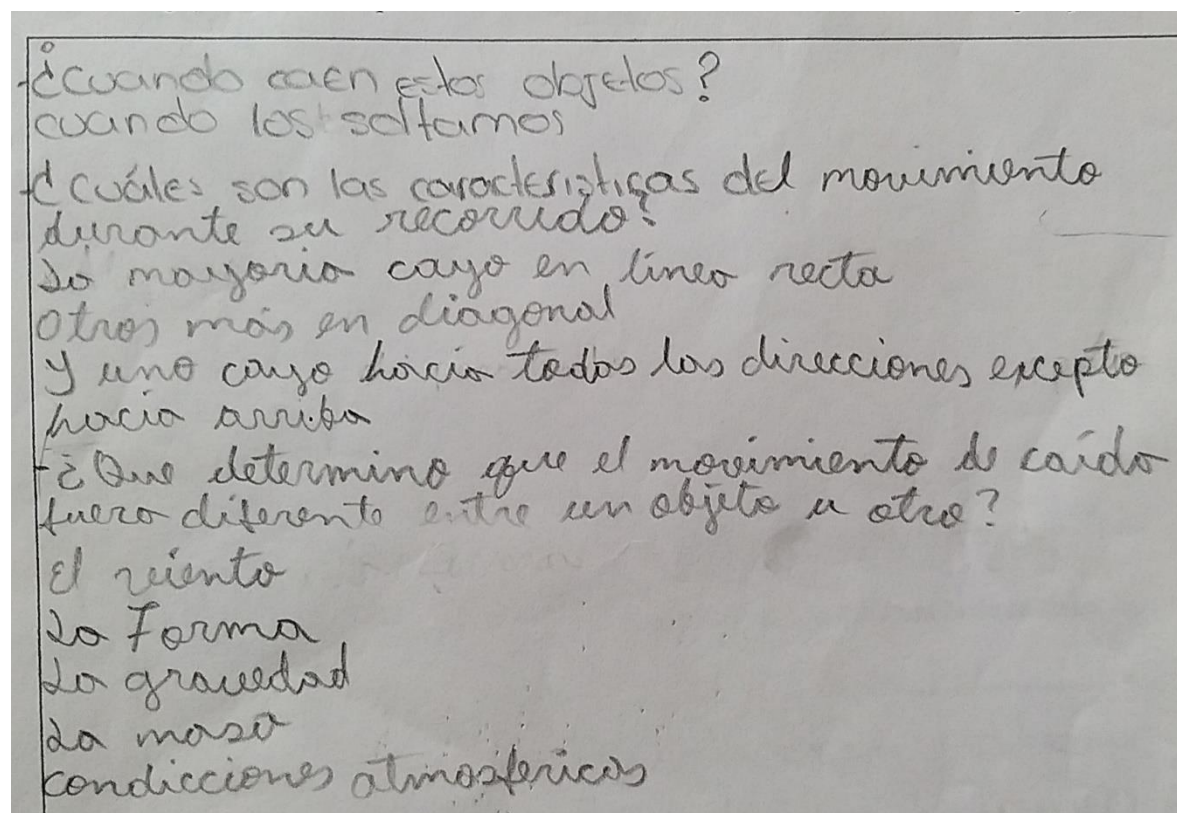 -¿cuando caen estos objetos?
cuando los soltamos
-¿cuáles son las caracteristicas del movimiento
durante su recorrido?
La mayoria cayo en linea recta
otros más en diagonal
y uno cayo hacia todas las direcciones excepto
hacia arriba
-¿Que determino que el movimiento de caída
fuera diferente entre un objeto u otro?
El viento
La Forma
La gravedad
La masa
condicciones atmosfericas